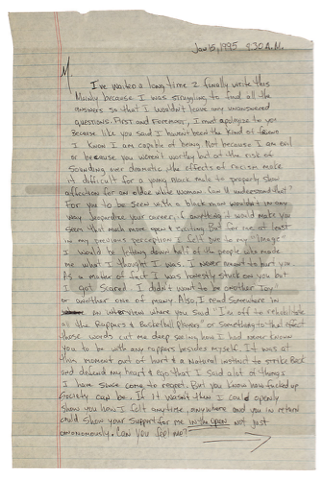 Jan 15, 1995 4:30 A.M.
M,
I've waited a long time 2 finally write this
Mainly because I was struggling to find all the
answers so that I wouldn't leave any unanswered
questions. First and Foremost, I must apologize to you
Because like you said I haven't been the kind of friend
I know I am capable of being. Not because I am evil
or because you weren't worthy but at the risk of
sounding over dramatic, the effects of racism make
it difficult for a young black male to properly show
affection for an older white woman
For you to be seen with a black man wouldn't in any
way jeopardize your career, if anything it would make you
seem that much more open & exciting. But for me at least
in my previous perception I felt due to my "image"
I would be letting down half of the people who made
me what I thought I was. I never meant to hurt you
As a matter of fact I was honestly stuck on you but
I got scared. I didn't want to be another
or another one of many. Also, I read somewhere in
an interview where you said "I'm off to rehabilitate
all the Rappers & Basketball players" or something to that effect
those words cut me deep seeing how I had never known
you to be with any rappers besides myself. It was at
this moment out of hurt & a natural instinct to strike back
and defend my heart & ego that I said alot of things
I have since come to regret. But you know how fucked up
Society can be. If it wasn't then I could openly
show you how I felt anytime, anywhere and you in return
could show your support for me in the open not just
Can you feel me?